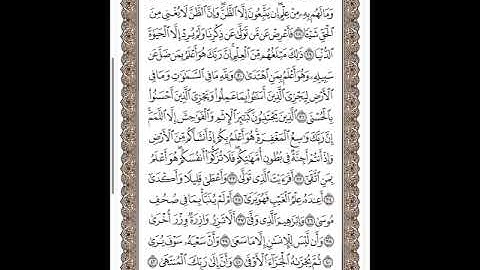 وَمَا لَهُم بِهِۦ مِنْ عِلْمٍ إِن يَتَّبِعُونَ إِلَّا ٱلظَّنَّ وَإِنَّ ٱلظَّنَّ لَا يُغْنِي مِنَ
ٱلْحَقِّ شَيْـًٔا ٢٨ فَأَعْرِضْ عَن مَّن تَوَلَّىٰ عَن ذِكْرِنَا وَلَمْ يُرِدْ إِلَّا ٱلْحَيَوٰةَ
ٱلدُّنْيَا ٢٩ ذَٰلِكَ مَبْلَغُهُم مِّنَ ٱلْعِلْمِ إِنَّ رَبَّكَ هُوَ أَعْلَمُ بِمَن ضَلَّ عَن
سَبِيلِهِۦ وَهُوَ أَعْلَمُ بِمَنِ ٱهْتَدَىٰ ٣٠ وَلِلَّهِ مَا فِي ٱلسَّمَٰوَٰتِ وَمَا فِي
ٱلْأَرْضِ لِيَجْزِيَ ٱلَّذِينَ أَسَٰٓـُٔوا۟ بِمَا عَمِلُوا۟ وَيَجْزِيَ ٱلَّذِينَ أَحْسَنُوا۟
بِٱلْحُسْنَى ٣١ ٱلَّذِينَ يَجْتَنِبُونَ كَبَٰٓئِرَ ٱلْإِثْمِ وَٱلْفَوَٰحِشَ إِلَّا ٱللَّمَمَ
إِنَّ رَبَّكَ وَٰسِعُ ٱلْمَغْفِرَةِ هُوَ أَعْلَمُ بِكُمْ إِذْ أَنشَأَكُم مِّنَ ٱلْأَرْضِ
وَإِذْ أَنتُمْ أَجِنَّةٌ فِي بُطُونِ أُمَّهَٰتِكُمْ فَلَا تُزَكُّوٓا۟ أَنفُسَكُمْ هُوَ أَعْلَمُ
بِمَنِ ٱتَّقَىٰٓ ٣٢ أَفَرَءَيْتَ ٱلَّذِي تَوَلَّىٰ ٣٣ وَأَعْطَىٰ قَلِيلًا وَأَكْدَىٰٓ
٣٤ أَعِندَهُۥ عِلْمُ ٱلْغَيْبِ فَهُوَ يَرَىٰٓ ٣٥ أَمْ لَمْ يُنَبَّأْ بِمَا فِي صُحُفِ
مُوسَىٰ ٣٦ وَإِبْرَٰهِيمَ ٱلَّذِي وَفَّىٰٓ ٣٧ أَلَّا تَزِرُ وَازِرَةٌ وِزْرَ أُخْرَىٰ
٣٨ وَأَن لَّيْسَ لِلْإِنسَٰنِ إِلَّا مَا سَعَىٰ ٣٩ وَأَنَّ سَعْيَهُۥ سَوْفَ يُرَىٰ
٤٠ ثُمَّ يُجْزَىٰهُ ٱلْجَزَآءَ ٱلْأَوْفَىٰ ٤١ وَأَنَّ إِلَىٰ رَبِّكَ ٱلْمُنتَهَىٰ ٤٢